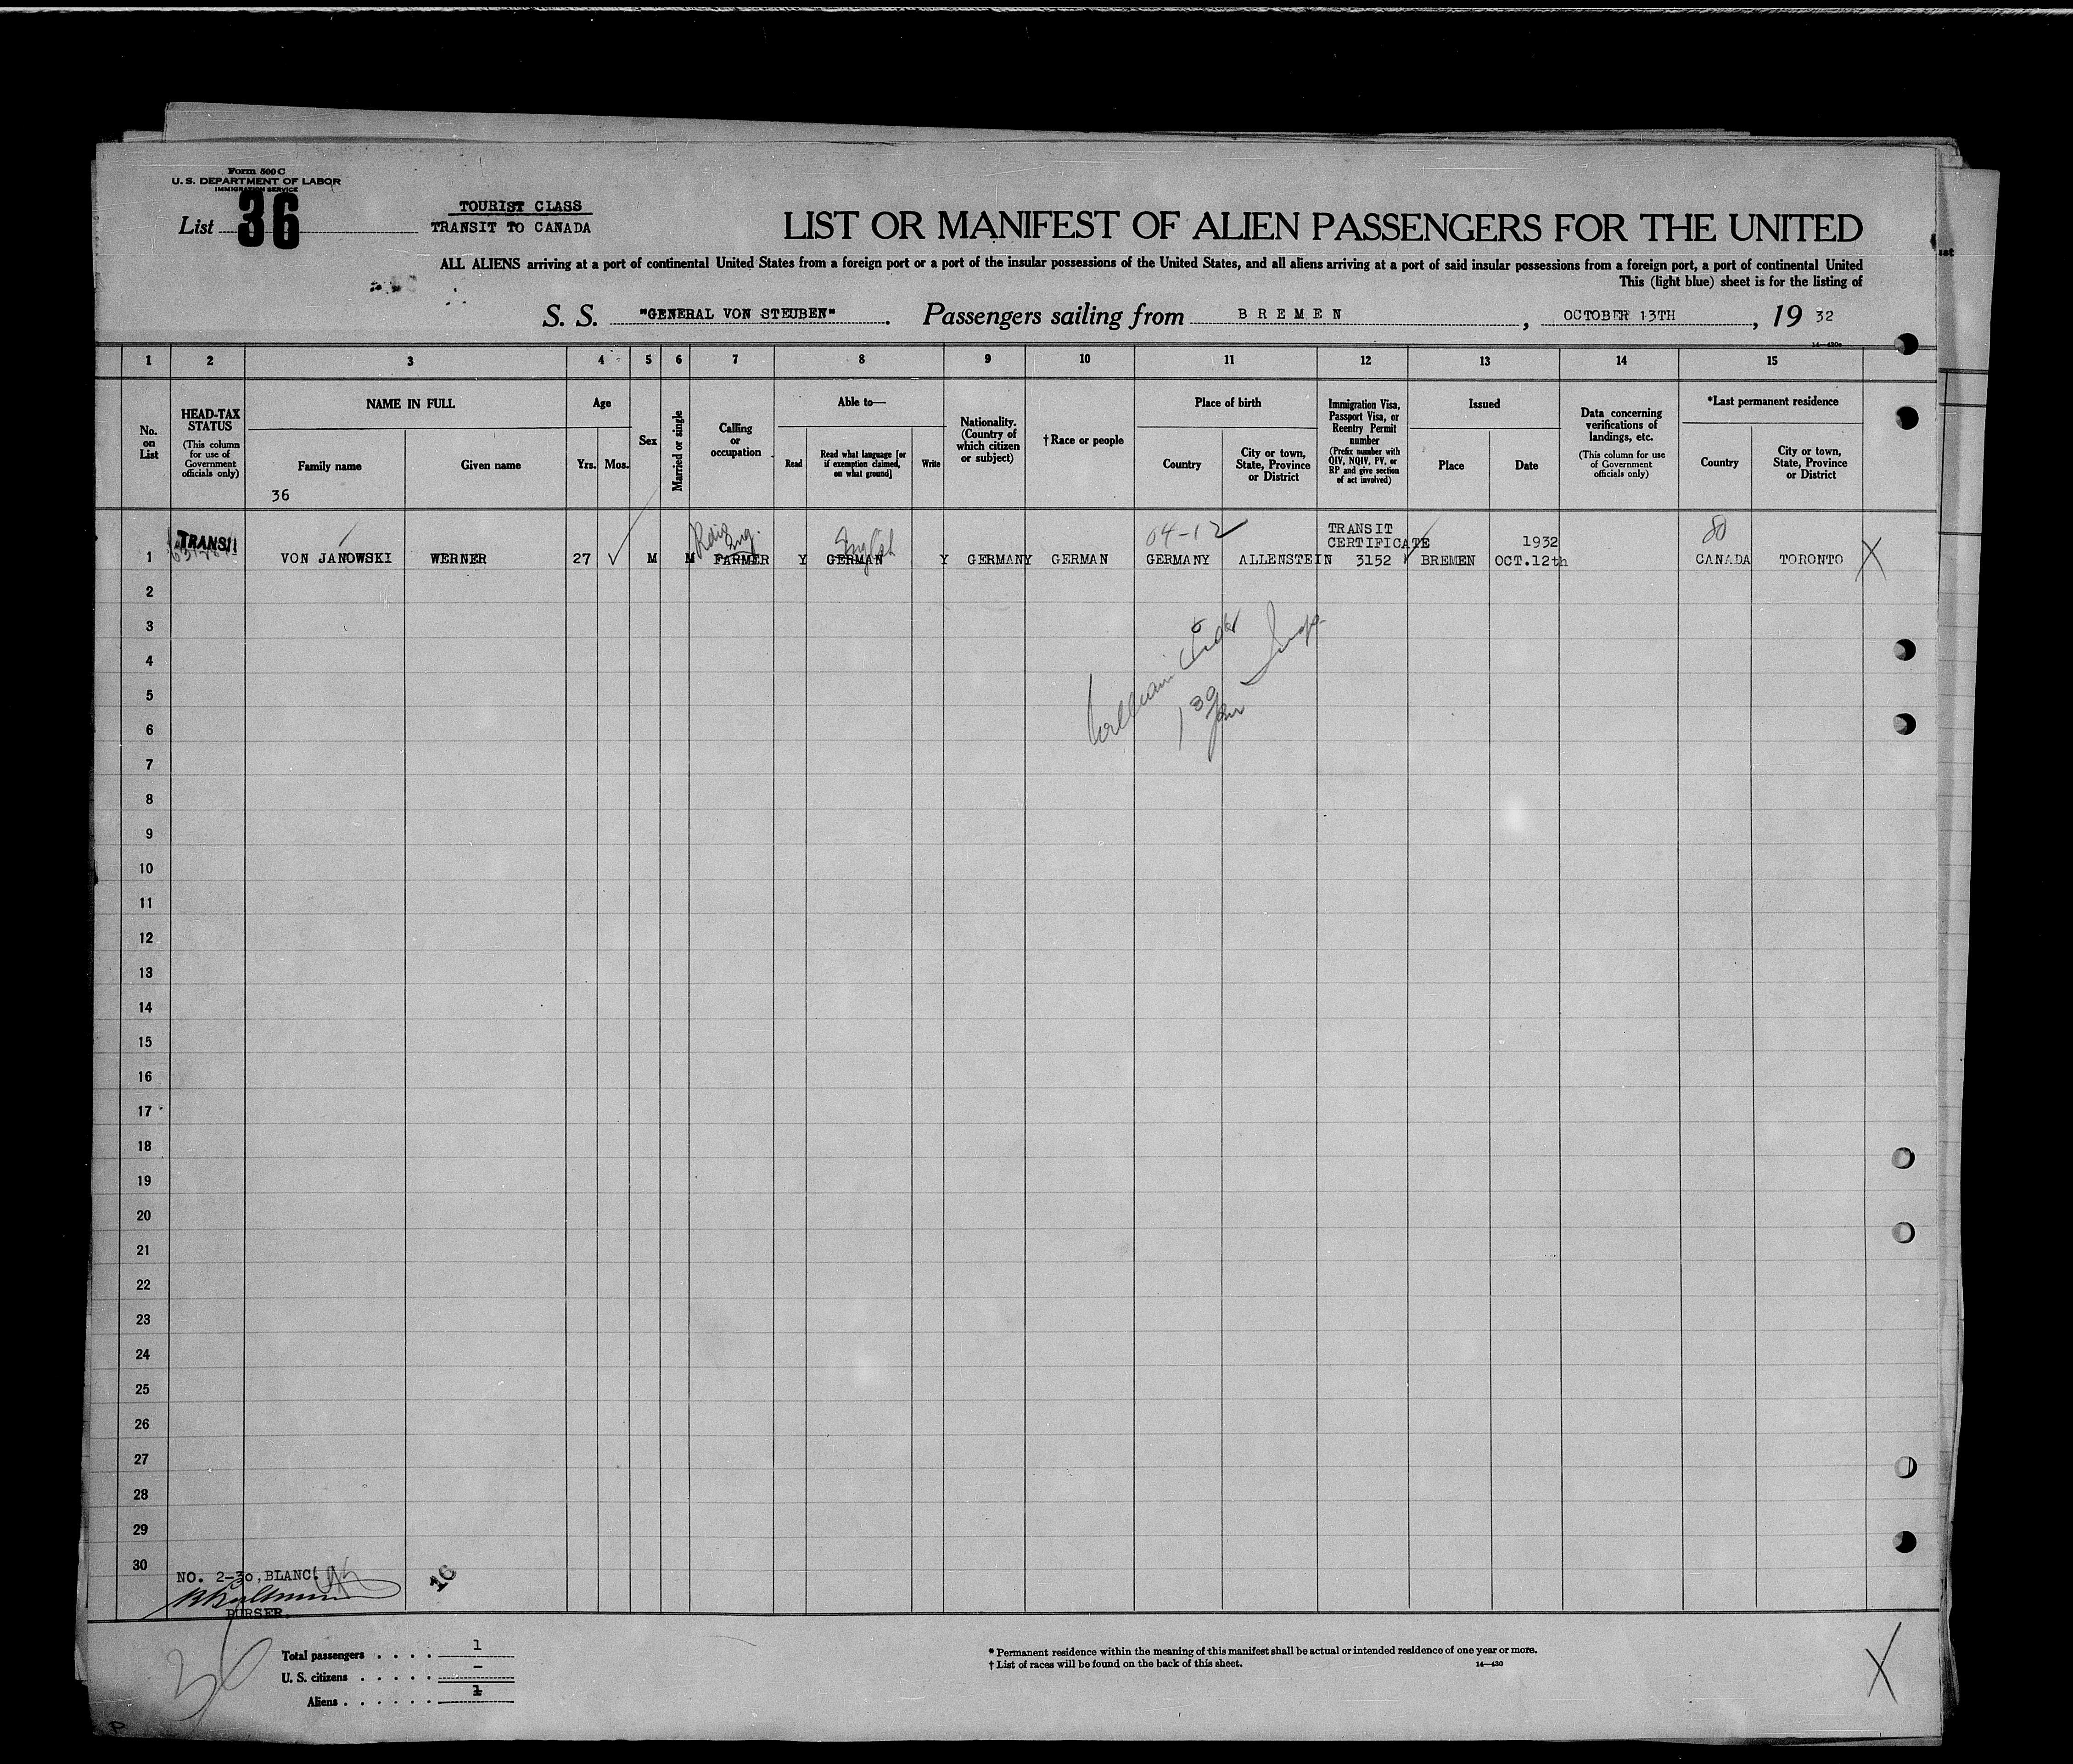 Form 500 C
U. S. DEPARTMENT OF LABOR
IMMIGRATION SERVICE
List 36
TOURIST CLASS
TRANSIT TO CANADA
LIST OR MANIFEST OF ALIEN PASSENGERS FOR THE UNITED
ALL ALIENS arriving at a port of continental United States from a foreign port or a port of the insular possessions of the United States, and all aliens arriving at a port of said insular possessions from a foreign port, a port of continental United
This (light blue) sheet is for the listing of
S. S. "GENERAL VON STEUBEN". Passengers sailing from BREMEN, OCTOBER 13TH, 19 32
1 2 3 4 5 6 7 8 9 10 11 12 13 14 15
No. on List
HEAD-TAX STATUS
(This column for use of Government officials only)
NAME IN FULL
Family name
Given name
36
Age
Yrs. Mos.
Sex
Married or single
Calling or occupation
Able to—
Read
Read what language [or if exemption claimed, on what ground]
Write
Nationality. (Country of which citizen or subject)
† Race or people
Place of birth
Country
City or town, State, Province or District
Immigration Visa, Passport Visa, or Reentry Permit number
(Prefix number with QIV, NQIV, PV, or RP and give section of act involved)
Issued
Place
Date
Data concerning verifications of landings, etc.
(This column for use of Government officials only)
*Last permanent residence
Country
City or town, State, Province or District
TRANSIT
English
04-12
TRANSIT
CERTIFICATE
1932
1 VON JANOWSKI WERNER 27 M M FARMER Y GERMAN Y GERMANY GERMAN GERMANY ALLENSTEIN 3152 BREMEN OCT.12th CANADA TORONTO
2
3
4
5
6
7
8
9
10
11
12
13
14
15
16
17
18
19
20
21
22
23
24
25
26
27
28
29
30
NO. 2-30, BLANC.
16
PURSER.
36
Total passengers . . . . 1
U. S. citizens . . . . . –
Aliens . . . . . . 1
* Permanent residence within the meaning of this manifest shall be actual or intended residence of one year or more.
† List of races will be found on the back of this sheet.
14—430